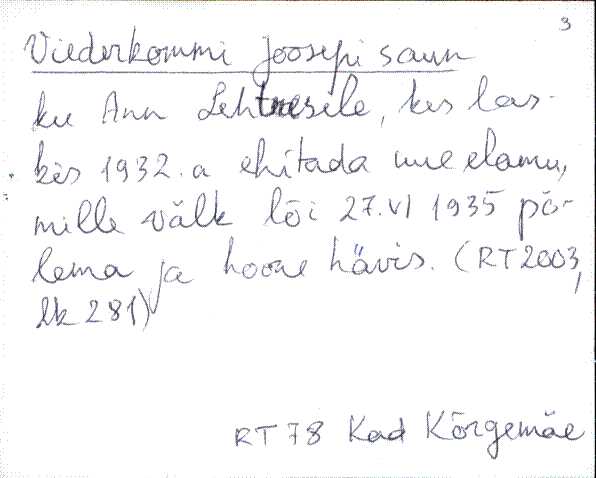 3
Viederkommi Joosepi saun
ku Ann Lehtmesele, kes las-
kis 1932. a ehitada uue elamu,
mille välk lõi 27. VI 1935 põ-
lema ja hoone hävis. (RT 2003,
lk 281)
RT 78 Kad Kõrgemäe